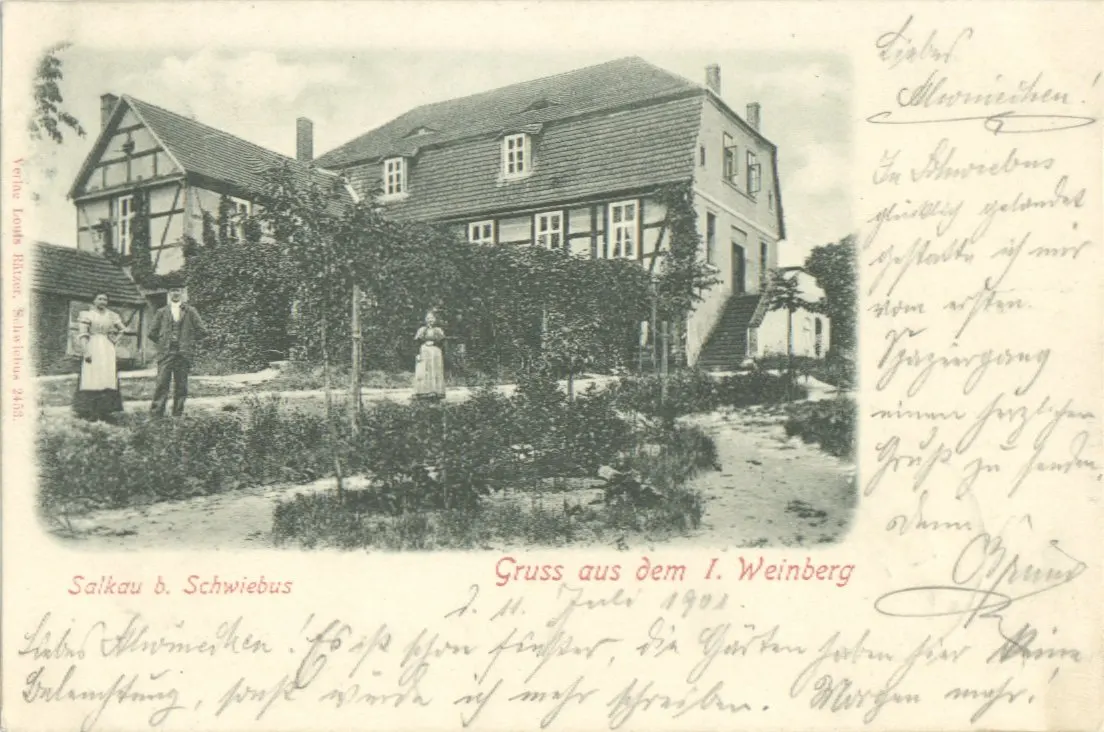 Liebes
Almänchen!
In Schwiebus
glücklich gelandet
gestatte ich mir
vom ersten
Spaziergang
einen herzlichen
Gruß zu senden.
Verlag Louis Rätzer, Schwiebus 2453.
Salkau b. Schwiebus
Gruss aus dem I. Weinberg
d. 11. Juli 1901
Liebes ! Es ist schon finster, die Gärten haben hier keine
Beleuchtung, sonst würde ich mehr schreiben. Morgen mehr!